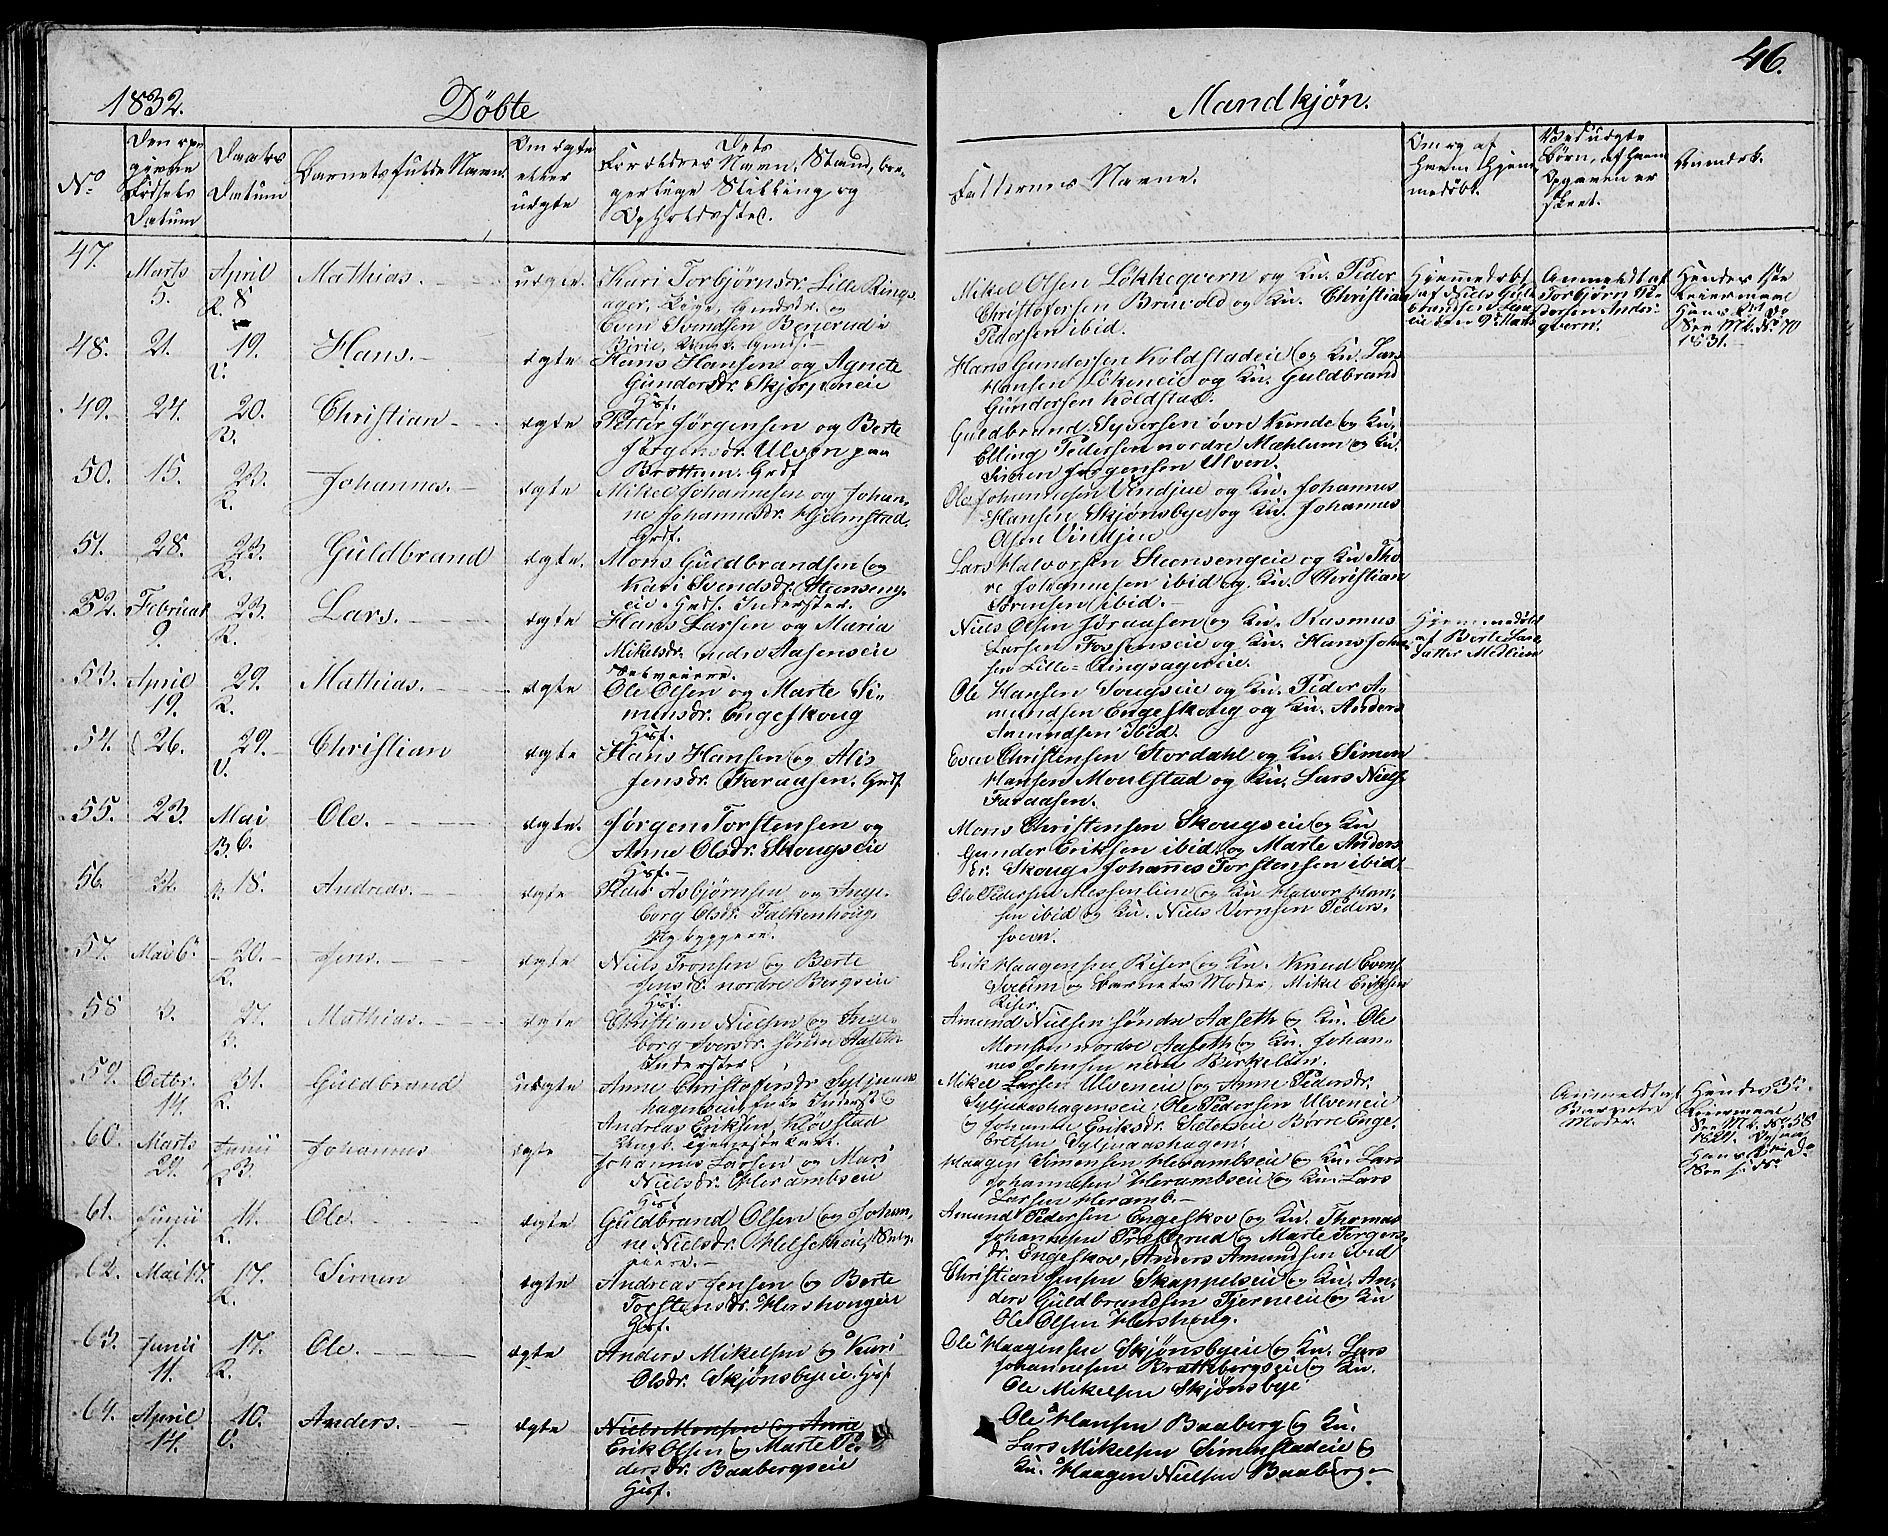 46.
1832. Döbte Mandkjøn.
No
Datum
Barnets fulde Navn.
Om ægte
eller
uægte
Dets
Forældres Navn, Stand, bor-
gerlige Stilling og
Opholdssted.
Faddernes Navne.
Om og af
hvem hjem-
medöbt.
Anmærk.
47. Marts 5. April 8 R. Mathias. uægte.
Kari Torbjørnsdr. Lille Rings-
ager, Pige,
Even Svendsen
Mikel Olsen Løkkeqvern og Ku. Peder
Christofersen Brüvold og Ku. Christian
Pedersen ibid.
Hjemmedöbt
af Niels Guld-
brandsen
9de Marts
Anmeldt af
Torbjørn Pe-
dersen
qvern.
Hendes 1ste
Leiermaal
Hans
See No 70
1831.
48. 21. 19. V. Hans. ægte
Hans Hansen og Agnete
Gundersdr. Skjerpeneie
Husf.
Hans Gundersen Koldstadeie og Ku. Lars
Hansen Løkeneie og Ku. Guldbrand
Gundersen Koldstad.
49. 24. 20. B. Christian ægte
Petter Jørgensen og Berte
Jörgensdr. Ulven paa
Brøttum. Grdf
Guldbrand Syversen øvre Kinde og Ku.
Elling Pedersen nordre Mæhlum og Ku.
Simen Jørgensen Ulven.
50. 15. 23. R. Johannes. ægte
Mikel Johannesen og Johan-
ne Johannesdr. Hjelmstad.
Grdf.
Ole Johannesen Vindjue og Ku. Johannes
Hansen Skjønsbye og Ku. Johannes
Olsen Vindjue
51. 28. 23. R. Guldbrand ægte.
Mons Guldbrandsen og
Kari Svendsdr. Steenseng-
eie. Husf. Inderster.
Lars Halvorsen Steensengeie og Ku. Tho-
re Johannesen ibid og Ku. Christian
Sørensen ibid.
52. Februar 9. 23. R. Lars. ægte
Hans Larsen og Maria
Mikelsdr. nedre Aaseneie
Selveiere.
Niels Olsen Joraasen og Ku. Rasmus
Larsen Fosseneie og Ku. Hans Johan-
sen Lille-Ringsagereie.
Hjemmedöbt
af Berte Lars-
datter Medlien
53. April 19. 29. R. Mathias. ægte
Ole Olsen og Marte Si-
mensdr. Engeskoug
Husf.
Ole Hansen Sougseie og Ku. Peder A-
mundsen Engeskoug og Ku. Anders
Amundsen ibid.
54. 26. 29. V. Christian ægte
Hans Hansen og Alis
Jensdr. Faraasen. Grdf
Even Christensen Stordahl og Ku. Simen
Hansen Moulstad og Ku. Lars Niels.
Faraasen.
55. 23. Mai 6. B. Ole. ægte.
Jørgen Torstensen og
Anne Olsdr. Skougseie
Husf.
Mons Christensen Skougseie og Ku
Gunder Eriksen ibid og Marte Anders
dr. Skoug. Johannes Torstensen ibid
56. 18. Andreas. ægte
Asbjørnsen og Inge-
borg Olsdr. Falkenhoug,
Nybyggere.
Ole Pedersen Messenlien og Ku Halvor Han-
sen ibid og Ku. Niels Peders-
sveen.
57. Mai 6. 20. R. Jens. ægte
Niels Tronsen og Berte
Jensd. nordre Bergseie
Husf.
Erik Haagensen Riser og Ku. Knud Evens.
Sveum og Barnets Moder, Mikel Eriksen
Riser.
58 27. Mathias. ægte
Christian Nielsen og Inge-
borg Iversdr. søndre Aaseth
Inderster
Amund Nielsen søndre Aaseth og Ku. Ole
Monsen nordre Aaseth og Ku. Johan-
nes Johnsen Birkelun.
59. Octbr. 14. 31. R. Guldbrand uægte
Anne Christofersdr. Syljuaas-
hagenseie Enke Inderst og
Andreas Eriksen Kløvstad
Mikel Larsen Ulveneie og Anne Pedersdr.
Syljuaashagenseie, Ole Pedersen Ulveneie
og Johanne Eriksdr. Børre Enge-
bretsen Syljuaashagen.
Anmeldt af
Barnets
Moder.
Hendes 3die
Leiermaal
See No 58
60. Marts 29. Junii 3. Johannes ægte
Johannes Larsen og Mari
Nielsdr. Herambseie
Husf
Haagen Simensen Herambseie og Ku. Lars
Johannesen Herambseie og Ku. Lars
Larsen Heramb.
61. Junii 11. R. Ole. ægte
Guldbrand Olsen og Johan-
ne Nielsdr. Selv-
eiere.
Amund Pedersen Engeskov og Ku. Thomas
Johannesen Præsterud og Marte Torgers-
dr. Engeskov, Anders Amundsen ibid
62. Mai 17. 17. R. Simen ægte
Andreas Jensen og Berte
Torstensdr. Hershougeie
Husf.
Christian Jensen Skappelseie og Ku. An-
ders Guldbrandsen Tjerneeie og Ku
Ole Olsen Hershoug.
63. Junii 11. 17. R. Ole. ægte
Anders Mikelsen og Kari
Olsdr. Skjønsbyeie. Husf
Ole Haagensen Skjønsbyeie og Ku. Lars
Johannesen Brattbergseie og Ku.
Ole Mikelsen Skjønsbye
64. April 14. 10. V. Anders. ægte
Niels Monsen og Anne
Erik Olsen og Marte Pe-
dersdr. Baabergseie
Husf.
Ole Hansen Baaberg og Ku.
Lars Mikelsen Simenstadeie og
Ku. Haagen Nielsen Baaberg.